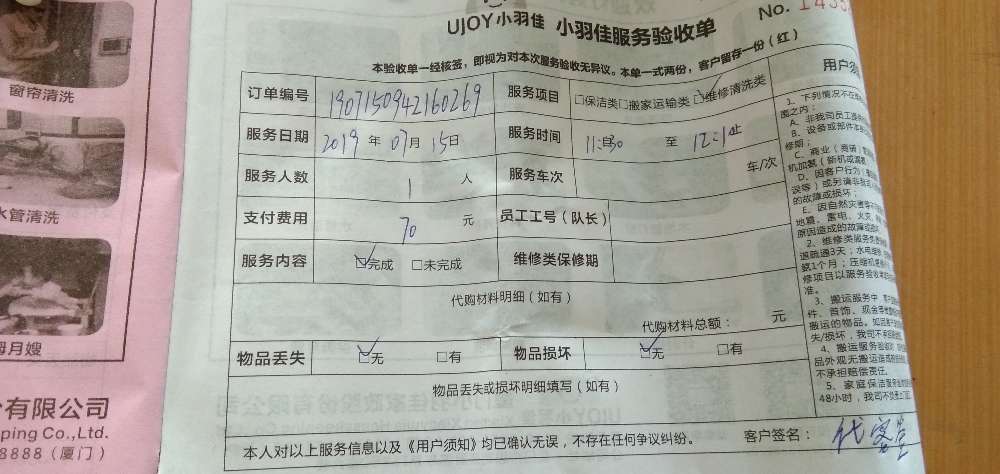 UJOY小羽佳 小羽佳服务验收单
No.
本验收单一经核签，即视为对本次服务验收无异议。本单一式两份，客户留存一份（红）
订单编号 1907150942160269 服务项目 □保洁类□搬家运输类☑维修清洗类
服务日期 2019年07月15日 服务时间 11:30 至
服务人数 1 人 服务车次 车/次
支付费用 70 元 员工工号（队长）
服务内容 ☑完成 □未完成 维修类保修期
代购材料明细（如有）
代购材料总额： 元
物品丢失 ☑无 □有 物品损坏 ☑无 □有
物品丢失或损坏明细填写（如有）
本人对以上服务信息以及《用户须知》均已确认无误，不存在任何争议纠纷。 客户签名：
用户须
1、下列情况不在
围之内：
A、非我司员工
B、设备或部件
修期；
C、商业（商铺）
机加氨（新机或
D、因客户行为（
误等）或另请非我
的故障或损坏；
E、因自然灾害等
地震、雷电、火灾、
原因造成的故障或
2、维修类服务
道疏通3天；水电维修
氨1个月；压缩机
修项目以服务验收单
准。
3、搬运服务中
件、首饰、现金等
搬运的物品。如因
失/损坏，我司不承担
4、搬运服务验收时
品外观无搬运造成
不承担赔偿责任。
5、家庭保洁服务
48小时，我司不负责
窗帘清洗
水管清洗
月嫂
有限公司
ping Co.,Ltd.
8888（厦门）